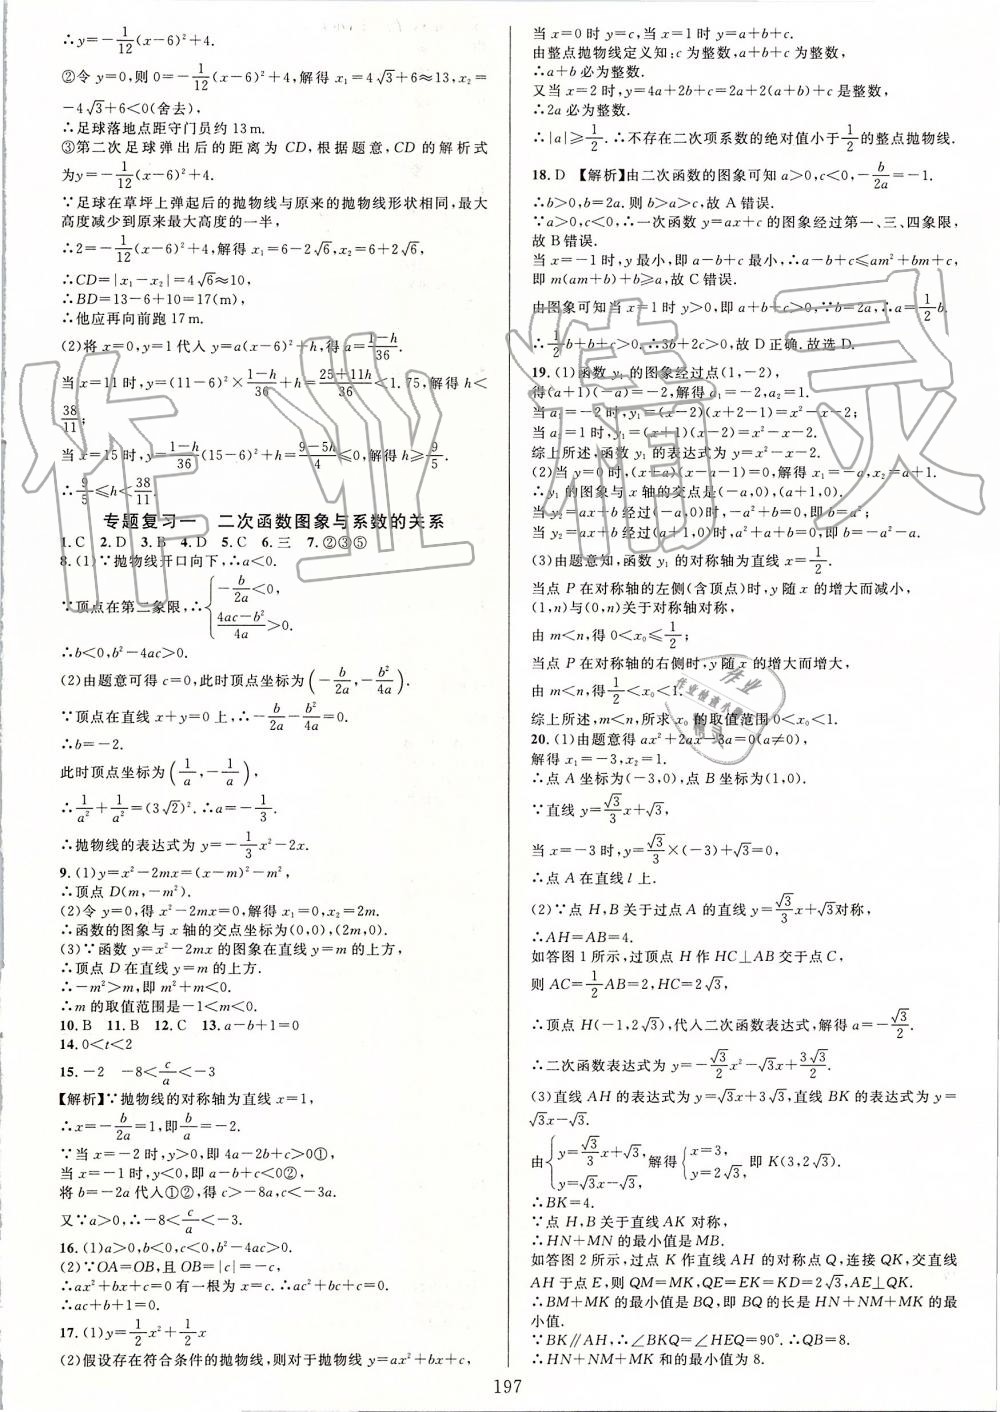 ∴y=-1/12(x-6)²+4.
②令 y=0,则 0=-1/12(x-6)²+4,解得 x₁=4√3+6≈13,x₂=
-4√3+6<0(舍去),
∴足球落地点距守门员约 13 m.
③第二次足球弹出后的距离为 CD,根据题意,CD 的解析式
为y=-1/12(x-6)²+4.
∵足球在草坪上弹起后的抛物线与原来的抛物线形状相同,最大
高度减少到原来最大高度的一半,
∴2=-1/12(x-6)²+4,解得 x₁=6-2√6,x₂=6+2√6,
∴CD=|x₁-x₂|=4√6≈10,
∴BD=13-6+10=17(m),
∴他应再向前跑 17 m.
(2)将 x=0,y=1 代入 y=a(x-6)²+h,得 a=(1-h)/36.
当 x=11 时,y=(11-6)²×(1-h)/36+h=(25+11h)/36<1.75,解得 h<
38/11;
当 x=15 时,y=(1-h)/36(15-6)²+h=(9-5h)/4≤0,解得 h≥9/5.
∴9/5≤h<38/11.
专题复习一 二次函数图象与系数的关系
1. C 2. D 3. B 4. D 5. C 6. 三 7. ②③⑤
8. (1)∵抛物线开口向下,∴a<0.
∵顶点在第二象限,∴{-b/2a<0, (4ac-b²)/4a>0.
∴b<0,b²-4ac>0.
(2)由题意可得 c=0,此时顶点坐标为(-b/2a,-b²/4a).
∵顶点在直线 x+y=0 上,∴-b/2a-b²/4a=0.
∴b=-2.
此时顶点坐标为(1/a,-1/a),
∴1/a²+1/a²=(3√2)².∴a=-1/3.
∴抛物线的表达式为 y=-1/3x²-2x.
9. (1)y=x²-2mx=(x-m)²-m²,
∴顶点 D(m,-m²).
(2)令 y=0,得 x²-2mx=0,解得 x₁=0,x₂=2m.
∴函数的图象与 x 轴的交点坐标为(0,0),(2m,0).
(3)∵函数 y=x²-2mx 的图象在直线 y=m 的上方,
∴顶点 D 在直线 y=m 的上方.
∴-m²>m,即 m²+m<0.
∴m 的取值范围是-1<m<0.
10. B 11. B 12. C 13. a-b+1=0
14. 0<t<2
15. -2 -8<c/a<-3
【解析】∵抛物线的对称轴为直线 x=1,
∴x=-b/2a=1,即b/a=-2.
∵当 x=-2 时,y>0,即 4a-2b+c>0①,
当 x=-1 时,y<0,即 a-b+c<0②,
将 b=-2a 代入①②,得 c>-8a,c<-3a.
又∵a>0,∴-8<c/a<-3.
16. (1)a>0,b<0,c<0,b²-4ac>0.
(2)∵OA=OB,且 OB=|c|=-c,
∴ax²+bx+c=0 有一根为 x=c.∴ac²+bc+c=0.
∴ac+b+1=0.
17. (1)y=1/2x²+1/2x
(2)假设存在符合条件的抛物线,则对于抛物线 y=ax²+bx+c,
当 x=0 时 y=c,当 x=1 时 y=a+b+c.
由整点抛物线定义知:c 为整数,a+b+c 为整数,
∴a+b 必为整数.
又当 x=2 时,y=4a+2b+c=2a+2(a+b)+c 是整数,
∴2a 必为整数.
∴|a|≥1/2.∴不存在二次项系数的绝对值小于1/2的整点抛物线.
18. D 【解析】由二次函数的图象可知 a>0,c<0,-b/2a=-1.
∴b>0,b=2a.则 b>a>c,故 A 错误.
∵a>0,c<0,∴一次函数 y=ax+c 的图象经过第一、三、四象限,
故 B 错误.
当 x=-1 时,y 最小,即 a-b+c 最小,∴a-b+c≤am²+bm+c,
即 m(am+b)+b≥a,故 C 错误.
由图象可知当 x=1 时 y>0,即 a+b+c>0,∵b=2a,∴a=1/2b.
∴1/2b+b+c>0.∴3b+2c>0,故 D 正确.故选 D.
19. (1)函数 y₁ 的图象经过点(1,-2),
得(a+1)(-a)=-2,解得 a₁=-2,a₂=1.
当 a=-2 时,y₁=(x-2)(x+2-1)=x²-x-2;
当 a=1 时,y₁=(x+1)(x-2)=x²-x-2.
综上所述,函数 y₁ 的表达式为 y=x²-x-2.
(2)当 y=0 时,(x+a)(x-a-1)=0,解得 x₁=-a,x₂=a+1.
∴y₁ 的图象与 x 轴的交点是(-a,0),(a+1,0).
当 y₂=ax+b 经过(-a,0)时,-a²+b=0,即 b=a²;
当 y₂=ax+b 经过(a+1,0)时,a²+a+b=0,即 b=-a²-a.
(3)由题意知,函数 y₁ 的对称轴为直线 x=1/2.
当点 P 在对称轴的左侧(含顶点)时,y 随 x 的增大而减小,
(1,n)与(0,n)关于对称轴对称,
由 m<n,得 0<x₀≤1/2;
当点 P 在对称轴的右侧时,y 随 x 的增大而增大,
由 m<n,得1/2<x₀<1.
综上所述,m<n,所求 x₀ 的取值范围 0<x₀<1.
20. (1)由题意得 ax²+2ax-3a=0(a≠0),
解得 x₁=-3,x₂=1.
∴点 A 坐标为(-3,0),点 B 坐标为(1,0).
∵直线 y=√3/3x+√3,
当 x=-3 时,y=√3/3×(-3)+√3=0,
∴点 A 在直线 l 上.
(2)∵点 H,B 关于过点 A 的直线 y=√3/3x+√3对称,
∴AH=AB=4.
如答图 1 所示,过顶点 H 作 HC⊥AB 交于点 C,
则 AC=1/2AB=2,HC=2√3,
∴顶点 H(-1,2√3),代入二次函数表达式,解得 a=-√3/2.
∴二次函数表达式为 y=-√3/2x²-√3x+3√3/2.
(3)直线 AH 的表达式为 y=√3x+3√3,直线 BK 的表达式为 y=
√3x-√3.
由{y=√3/3x+√3, y=√3x-√3, 解得{x=3, y=2√3, 即 K(3,2√3).
∴BK=4.
∵点 H,B 关于直线 AK 对称,
∴HN+MN 的最小值是 MB.
如答图 2 所示,过点 K 作直线 AH 的对称点 Q,连接 QK,交直线
AH 于点 E,则 QM=MK,QE=EK=KD=2√3,AE⊥QK.
∴BM+MK 的最小值是 BQ,即 BQ 的长是 HN+NM+MK 的最
小值.
∵BK∥AH,∴∠BKQ=∠HEQ=90°.∴QB=8.
∴HN+NM+MK 和的最小值为 8.
197
作业精灵
作业
作业检查小助手
精灵